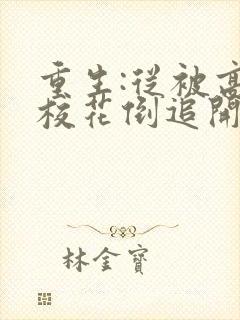 重生:從被高
校花倒追開
林金寶